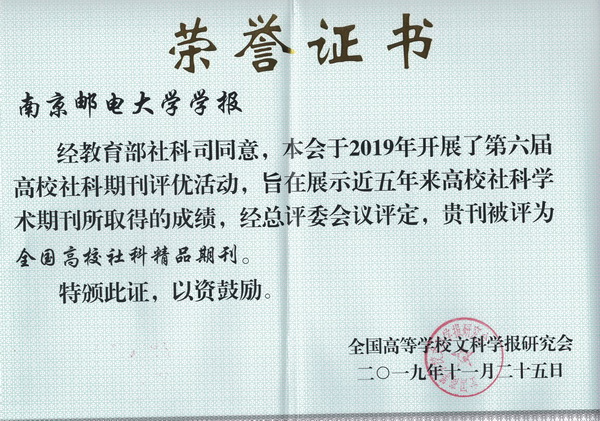 荣誉证书
南京邮电大学学报
经教育部社科司同意，本会于2019年开展了第六届
高校社科期刊评优活动，旨在展示近五年来高校社科学
术期刊所取得的成绩，经总评委会议评定，贵刊被评为
全国高校社科精品期刊。
特颁此证，以资鼓励。
全国高等学校文科学报研究会
二〇一九年十一月二十五日